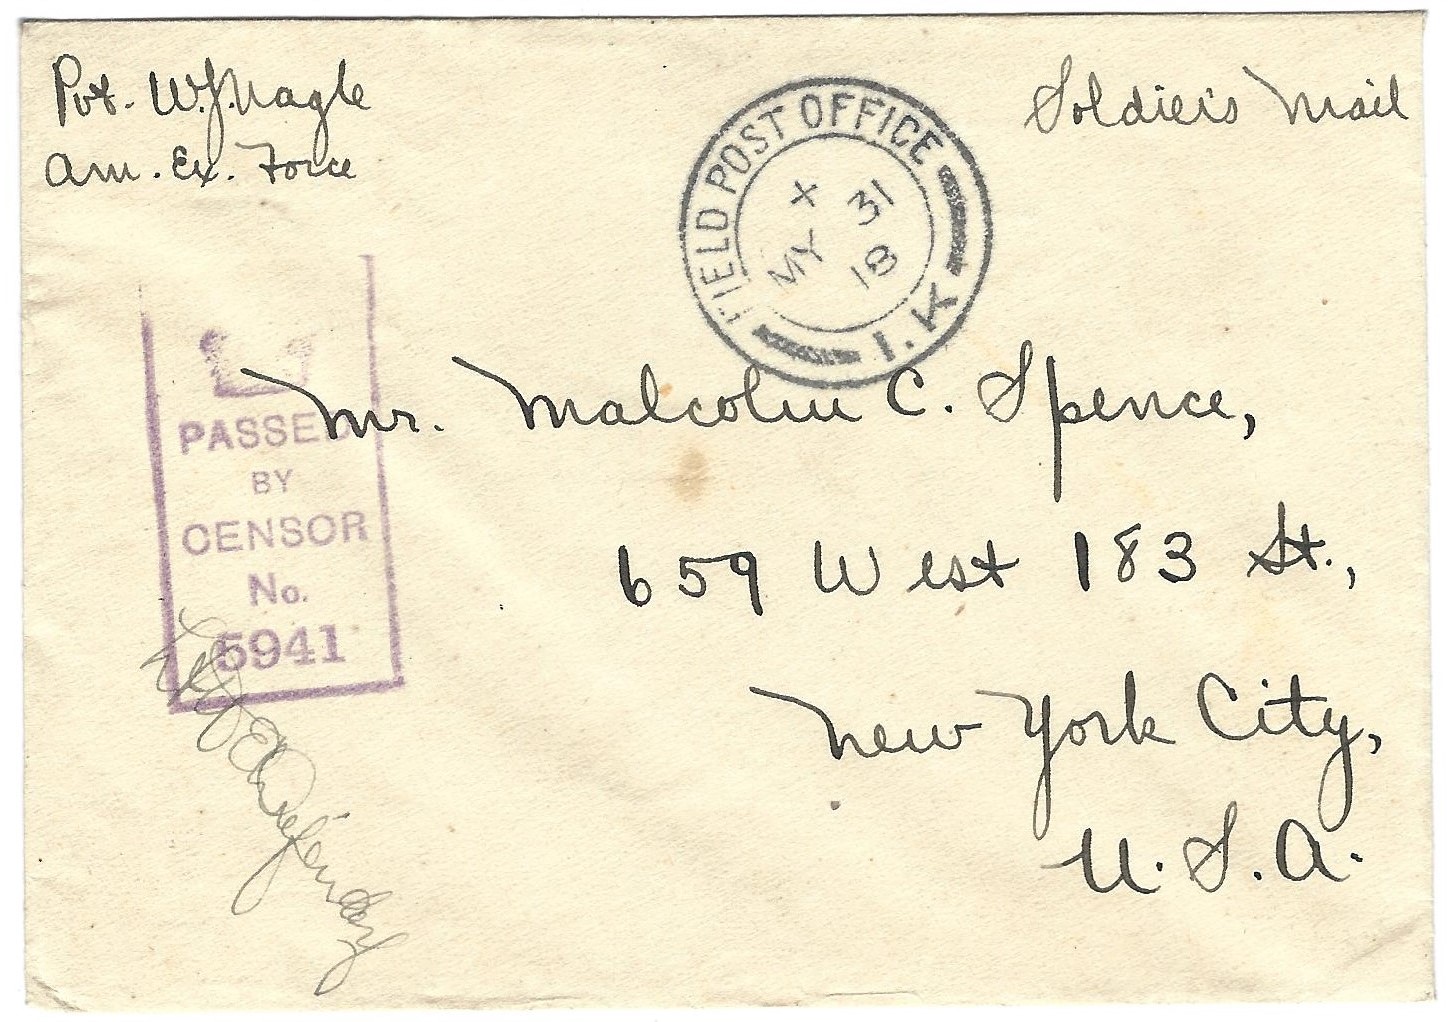 Pvt. W.J. Nagle
Am. Ex. Force
Soldier's Mail
FIELD POST OFFICE
X
MY 31
18
1.K
PASSED
BY
CENSOR
No.
5941
Mr. Malcolm C. Spence,
659 West 183 St.,
New York City,
U.S.A.